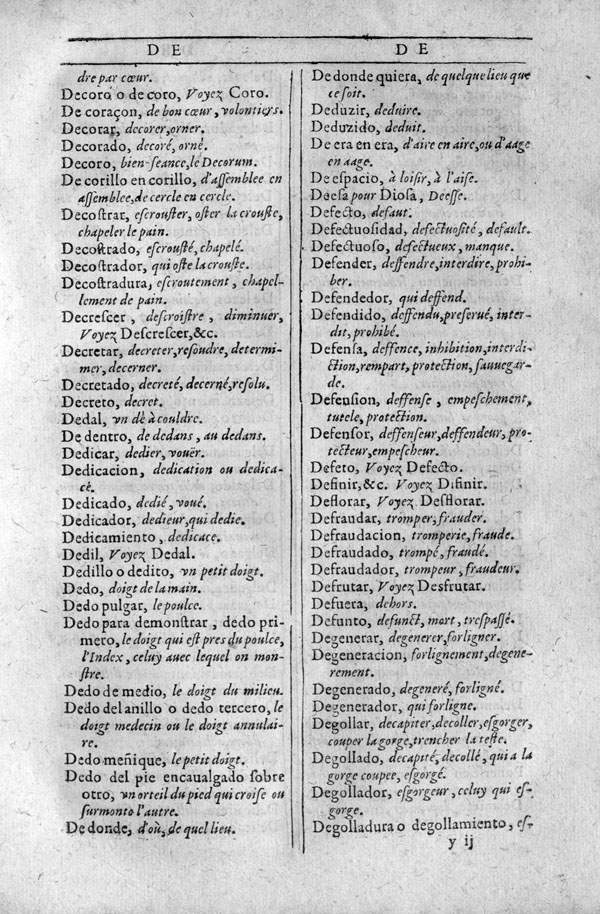 DE
dre par cœur.
Decoro o de coro, Voyez Coro.
De coraçon, de bon cœur, volontiers.
Decorar, decorer, orner.
Decorado, decoré, orné.
Decoro, bien-seance, le Decorum.
De corillo en corillo, d'assemblee en
assemblee, de cercle en cercle.
Decostrar, escrouster, oster la crouste,
chapeler le pain.
Decostrado, escrousté, chapelé.
Decostrador, qui oste la crouste.
Decostradura, escroutement, chapel-
lement de pain.
Decrescer, descroistre, diminuer,
Voyez Descrescer, &c.
Decretar, decreter, resoudre, determi-
mer, decerner.
Decretado, decreté, decerné, resolu.
Decreto, decret.
Dedal, vn dé à couldre.
De dentro, de dedans, au dedans.
Dedicar, dedier, vouër.
Dedicacion, dedication ou dedica-
cé.
Dedicado, dedié, voué.
Dedicador, dedieur, qui dedie.
Dedicamiento, dedicace.
Dedil, Voyez Dedal.
Dedillo o dedito, vn petit doigt.
Dedo, doigt de la main.
Dedo pulgar, le poulce.
Dedo para demonstrar, dedo pri-
mero, le doigt qui est pres du poulce,
l'Index, celuy auec lequel on mon-
stre.
Dedo de medio, le doigt du milieu.
Dedo del anillo o dedo tercero, le
doigt medecin ou le doigt annulai-
re.
Dedo meñique, le petit doigt.
Dedo del pie encaualgado sobre
otro, vn orteil du pied qui croise ou
surmonto l'autre.
De donde, d'où, de quel lieu.
DE
De donde quiera, de quelque lieu que
ce soit.
Deduzir, deduire.
Deduzido, deduit.
De era en era, d'aire en aire, ou d'aage
en aage.
De espacio, à loisir, à l'aise.
Deesa pour Diosa, Deesse.
Defecto, defaut.
Defectuosidad, defectuosité, default.
Defectuoso, defectueux, manque.
Defender, deffendre, interdire, prohi-
ber.
Defendedor, qui deffend.
Defendido, deffendu, preserué, inter-
dit, prohibé.
Defensa, deffence, inhibition, interdi-
ction, rempart, protection, sauuegar-
de.
Defension, deffense, empeschement,
tutele, protection.
Defensor, deffenseur, deffendeur, pro-
tecteur, empescheur.
Defeto, Voyez Defecto.
Definir, &c. Voyez Difinir.
Deflorar, Voyez Desflorar.
Defraudar, tromper, frauder.
Defraudacion, tromperie, fraude.
Defraudado, trompé, fraudé.
Defraudador, trompeur, fraudeur.
Defrutar, Voyez Desfrutar.
Defuera, dehors.
Defunto, defunct, mort, trespassé.
Degenerar, degenerer, forligner.
Degeneracion, forlignement, degene-
rement.
Degenerado, degeneré, forligné.
Degenerador, qui forligne.
Degollar, decapiter, decoller, esgorger,
couper la gorge, trencher la teste.
Degollado, decapité, decollé, qui a la
gorge coupee, esgorgé.
Degollador, esgorgeur, celuy qui es-
gorge.
Degolladura o degollamiento, es-
y ij